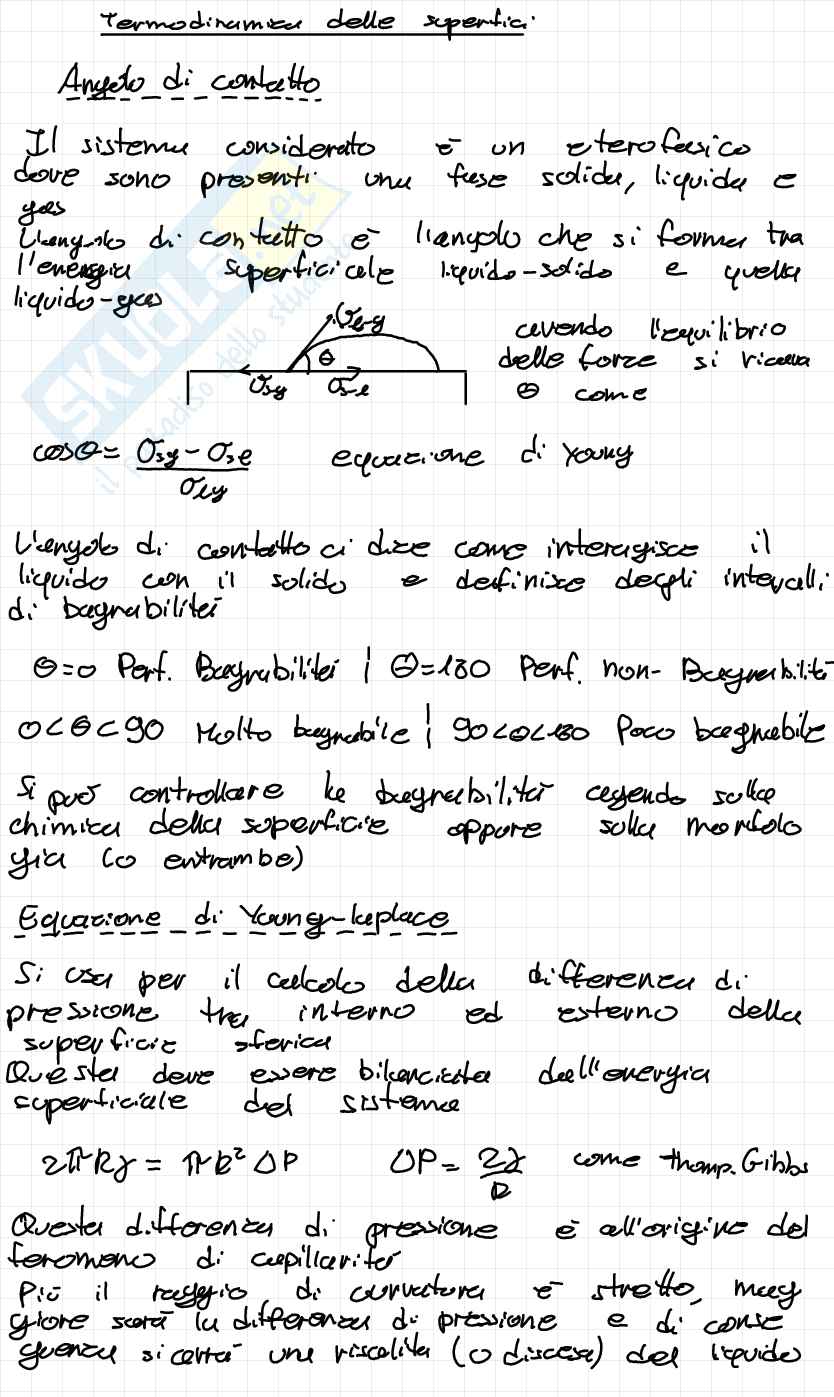 Termodinamica delle superfici
Angolo di contatto
Il sistema considerato è un eterofasico
dove sono presenti una fase solida, liquida e
gas
L'angolo di contatto è l'angolo che si forma tra
l'energia superficiale liquido-solido e quella
liquido-gas
σl-g
θ
σsg σs-l
avendo l'equilibrio
delle forze si ricava
θ come
cosθ = σsg - σsl / σlg equazione di Young
L'angolo di contatto ci dice come interagisce il
liquido con il solido e definisce degli intevalli
di bagnabilità
θ=0 Perf. Bagnabilità | θ=180 Perf. non-Bagnabilità
0<θ<90 Molto bagnabile | 90<θ<180 Poco bagnabile
Si può controllare la bagnabilità agendo sulla
chimica della superficie oppure sulla morfolo
gia (o entrambe)
Equazione di Young-Laplace
Si usa per il calcolo della differenza di
pressione tra interno ed esterno della
superficie sferica
Questa deve essere bilanciata dall'energia
superficiale del sistema
2πRγ = πR² ΔP ΔP = 2γ/R come Thomp. Gibbs
Questa differenza di pressione è all'origine del
fenomeno di capillarità
Più il raggio di curvatura è stretto, mag
giore sarà la differenza di pressione e di conse
guenza si avrà una risalita (o discesa) del liquido
SKUOLA.net
il paradiso dello studente